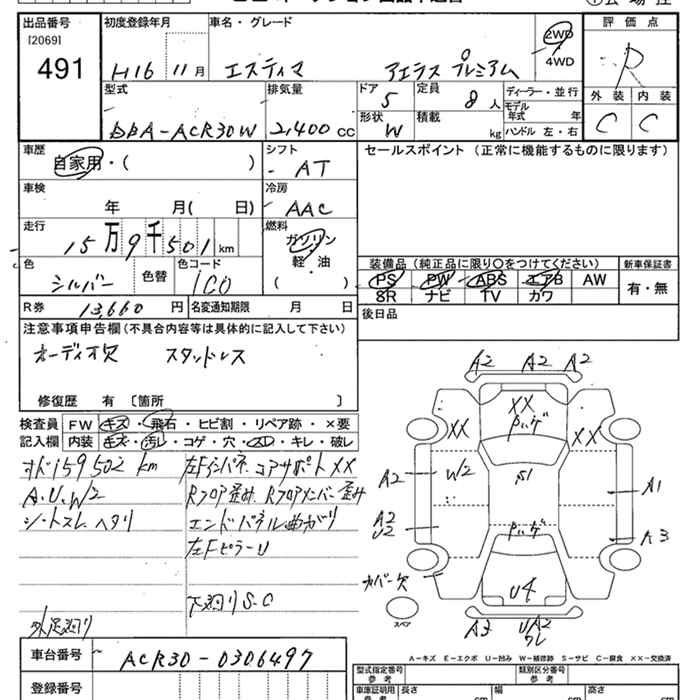 出品番号
[2069]
491
初度登録年月
H16 年 11月
車名・グレード
エスティマ アエラス プレミアム
2WD
4WD
評価点
R
外装 内装
C C
型式
DBA-ACR30W
排気量
2,400 cc
ドア 5
定員 8人
形状 W
積載 kg
ディーラー・並行
モデル年式 年
ハンドル 左・右
車歴
自家用・( )
シフト
AT
セールスポイント (正常に機能するものに限ります)
車検
年 月( 日)
冷房
AAC
走行
15万9千501km
燃料
ガソリン
軽・油
( )
色
シルバー
色替
色コード
1C0
装備品 (純正品に限り○をつけてください)
PS PW ABS エアB AW
SR ナビ TV カワ
新車保証書
有・無
R券 13,660 円
名変通知期限 月 日
後日品
注意事項申告欄 (不具合内容等は具体的に記入して下さい)
オーディオ欠 スタッドレス
修復歴 有 [箇所 ]
検査員
記入欄
FW キズ・飛石・ヒビ割・リペア跡・×要
内装 キズ・汚レ・コゲ・穴・スレ・キレ・破レ
オド159,502 km
A.U.W2
シートスレ ヘタリ
左Fインパネ コアサポート XX
Rフロア歪み Rフロアメンバー歪み
エンドパネル曲がり
左Fピラー U
下廻り S.C
外足廻り
A2 A2 A2
XX
XX XX
A2 W2 S1 A1
A2
U2
A3
カバー欠
U4
スペア
A3 UA2
ワレ
A-キズ E-エクボ U-凹み W-補修跡 S-サビ C-腐食 XX-交換済
車台番号 ACR30-0306497
登録番号
型式指定番号
参考
類別区分番号
参考
車庫証明用
参考
長さ cm
幅 cm
高さ cm